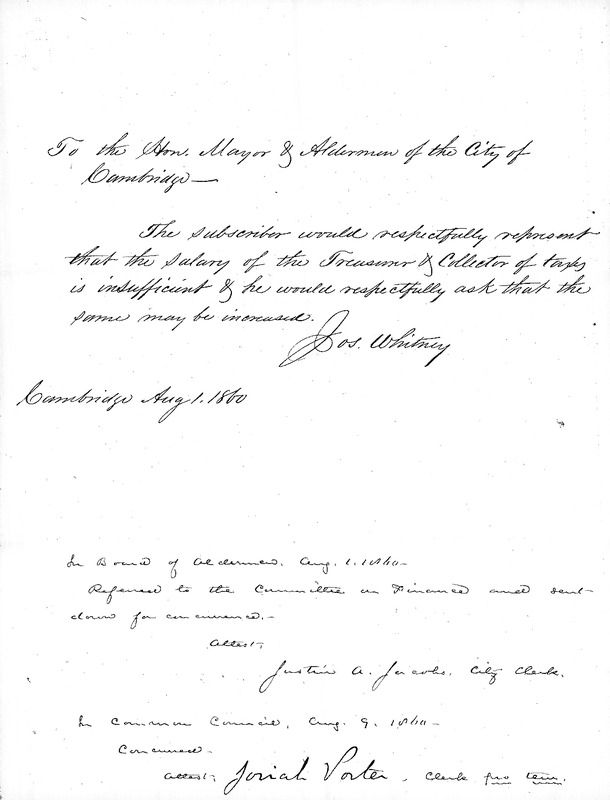 To the Hon. Mayor & Aldermen of the City of
Cambridge—
The subscriber would respectfully represent
that the salary of the Treasurer & Collector of taxes
is insufficient & he would respectfully ask that the
same may be increased.
Jos. Whitney
Cambridge Aug 1. 1860
In Board of Aldermen, Aug. 1. 1860–
Referred to the Committee on Finance and sent
down for concurrence.–
Attest;
Justin A. Jacobs, City Clerk.
In Common Council, Aug. 9. 1860–
Concurred–
Attest; Josiah Porter, Clerk pro tem.